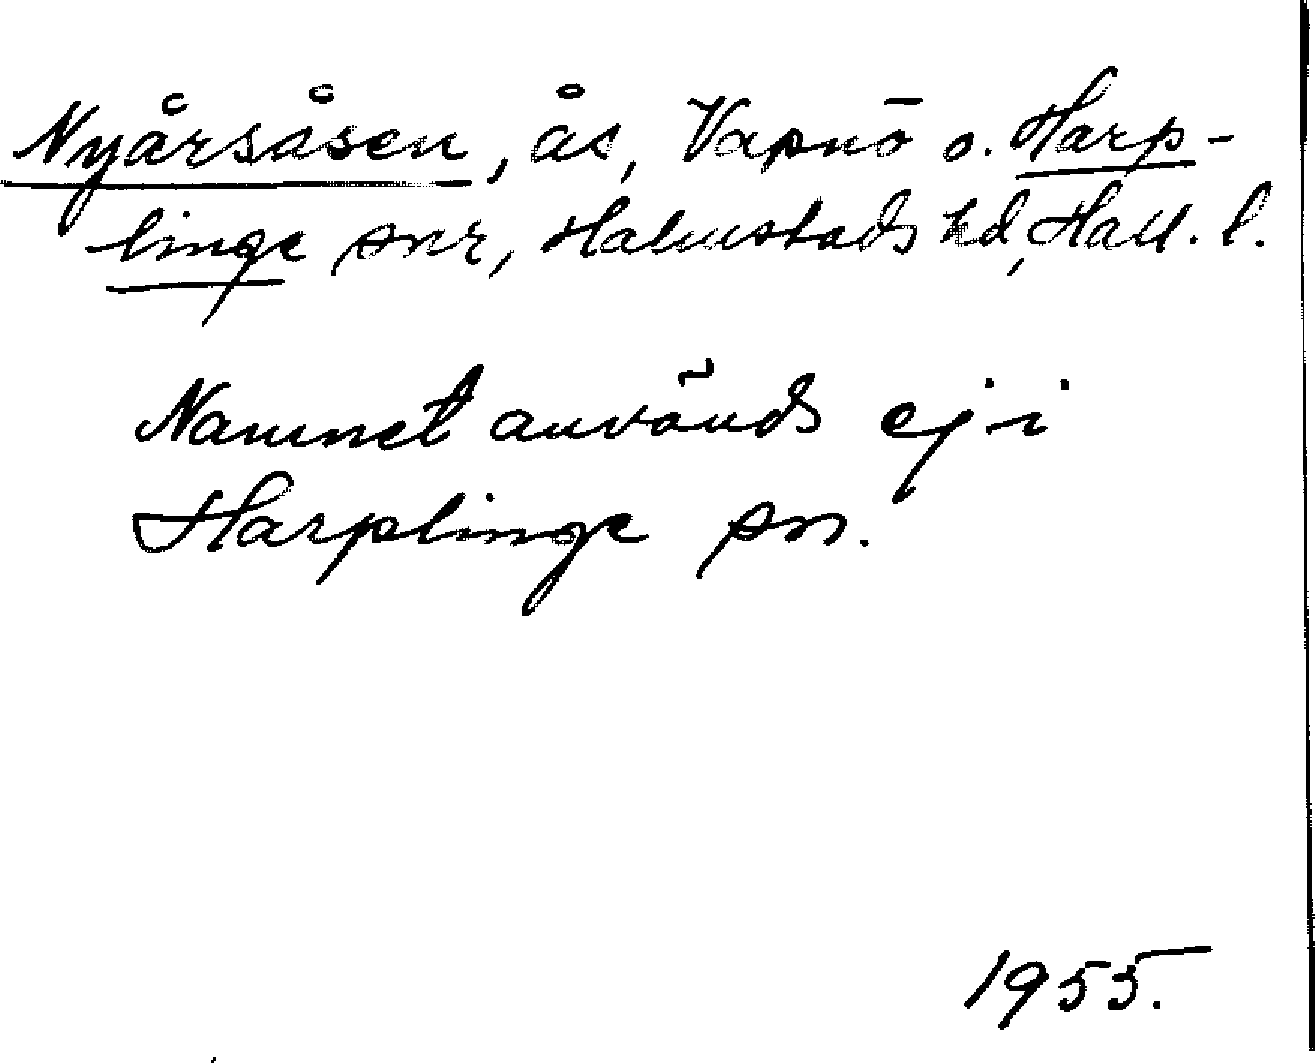 Nyårsåsen, ås, Vapnö o. Harp-
linge snr, Halmstads hd, Hall. l.
Namnet används ej i
Harplinge sn.
1955.